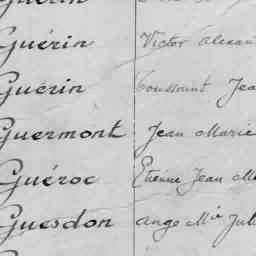 Guérin Victor Alexan
Guérin Toussaint Jea
Guermont Jean Marie
Guéroc Etienne Jean Ma
Guesdon Ange Mie Jul